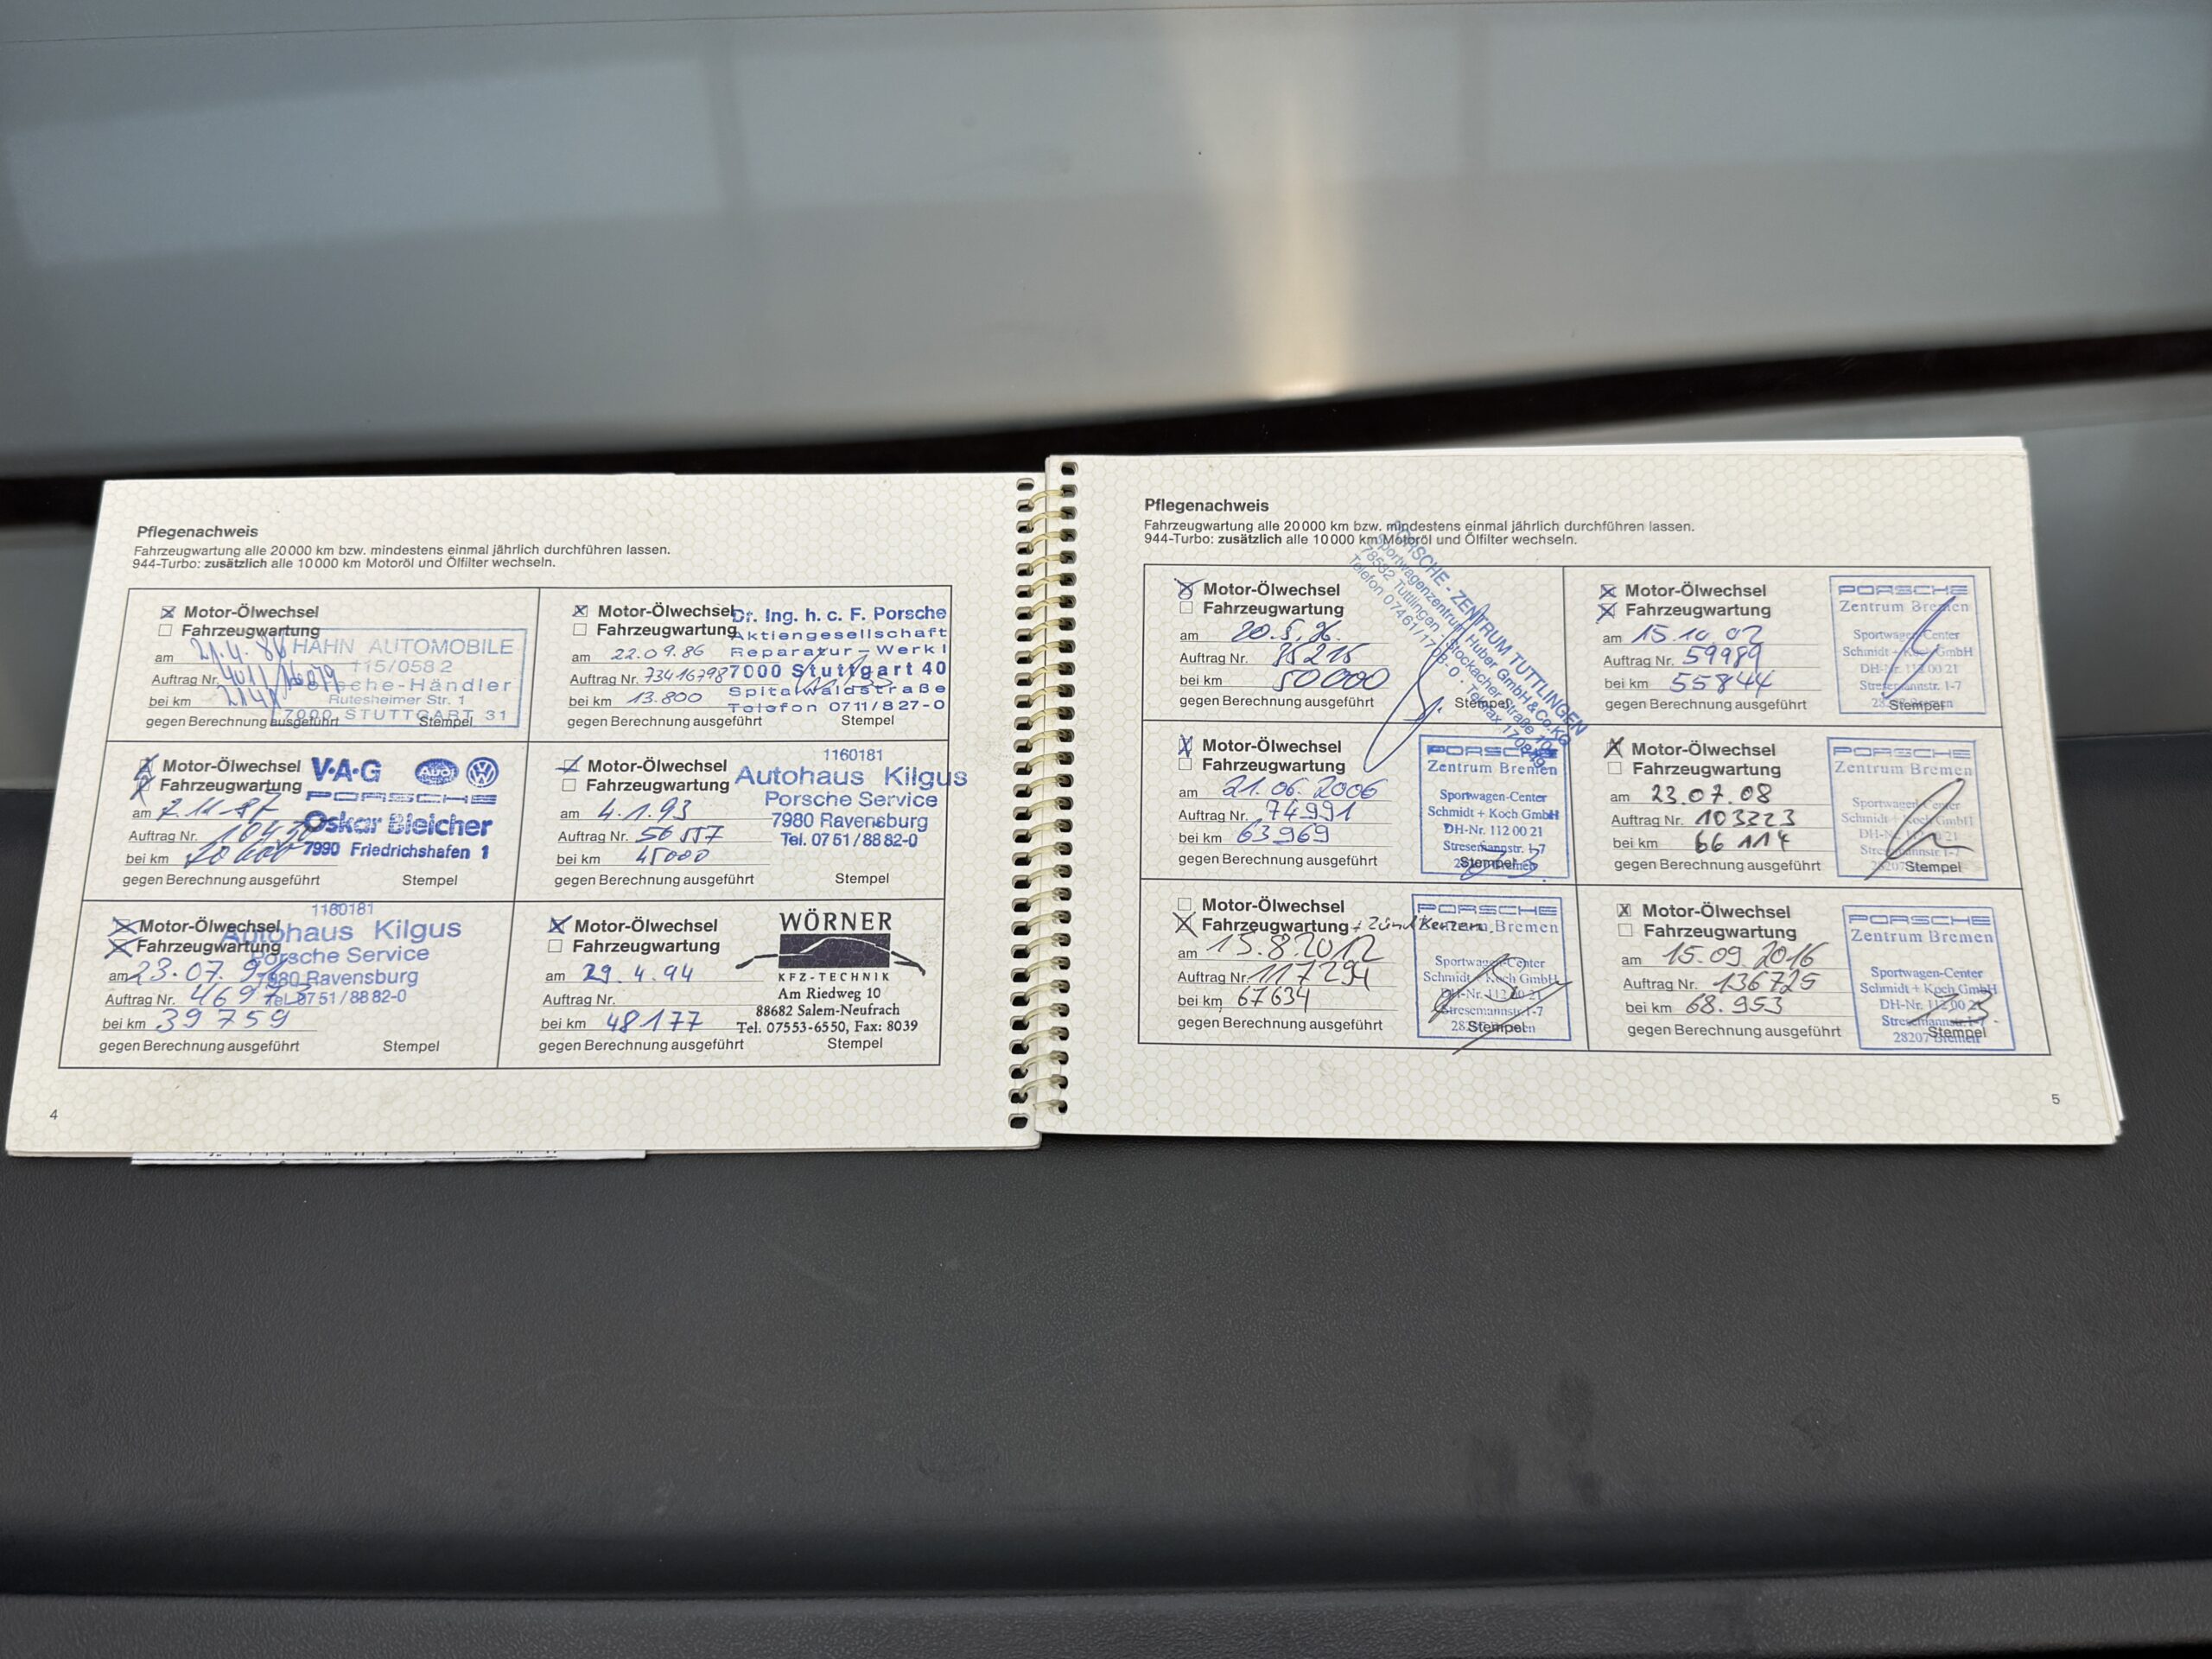 Pflegenachweis
Fahrzeugwartung alle 20 000 km bzw. mindestens einmal jährlich durchführen lassen.
944-Turbo: zusätzlich alle 10 000 km Motoröl und Ölfilter wechseln.
Motor-Ölwechsel
Fahrzeugwartung
am 21.4.86
Auftrag Nr.
bei km
gegen Berechnung ausgeführt Stempel
HAHN AUTOMOBILE
115/058 2
Porsche-Händler
Rutesheimer Str. 1
7000 STUTTGART 31
Motor-Ölwechsel
Fahrzeugwartung
am 22.09.86
Auftrag Nr. 73416798
bei km 13.800
gegen Berechnung ausgeführt Stempel
Dr. Ing. h. c. F. Porsche
Aktiengesellschaft
Reparatur-Werk I
7000 Stuttgart 40
Spitalwaldstraße
Telefon 0711/827-0
Motor-Ölwechsel
Fahrzeugwartung
am 7.11.87
Auftrag Nr.
bei km
gegen Berechnung ausgeführt Stempel
V·A·G Audi
PORSCHE
Oskar Bleicher
7990 Friedrichshafen 1
Motor-Ölwechsel
Fahrzeugwartung
am 4.1.93
Auftrag Nr. 56557
bei km 45000
gegen Berechnung ausgeführt Stempel
1160181
Autohaus Kilgus
Porsche Service
7980 Ravensburg
Tel. 0751/8882-0
Motor-Ölwechsel
Fahrzeugwartung
am 23.07.91
Auftrag Nr. 46973
bei km 39759
gegen Berechnung ausgeführt Stempel
1160181
Autohaus Kilgus
Porsche Service
7980 Ravensburg
Tel. 0751/8882-0
Motor-Ölwechsel
Fahrzeugwartung
am 29.4.94
Auftrag Nr.
bei km 48177
gegen Berechnung ausgeführt Stempel
WÖRNER
KFZ-TECHNIK
Am Riedweg 10
88682 Salem-Neufrach
Tel. 07553-6550, Fax: 8039
4
Pflegenachweis
Fahrzeugwartung alle 20 000 km bzw. mindestens einmal jährlich durchführen lassen.
944-Turbo: zusätzlich alle 10 000 km Motoröl und Ölfilter wechseln.
Motor-Ölwechsel
Fahrzeugwartung
am 20.5.96.
Auftrag Nr. 35215
bei km 50000
gegen Berechnung ausgeführt Stempel
PORSCHE - ZENTRUM TUTTLINGEN
Sportwagenzentrum Huber GmbH & Co. KG
78532 Tuttlingen · Stockacher Straße
Telefon 07461/1708-0 · Telefax
Motor-Ölwechsel
Fahrzeugwartung
am 15.10.02
Auftrag Nr. 59989
bei km 55844
gegen Berechnung ausgeführt Stempel
PORSCHE
Zentrum Bremen
Sportwagen-Center
Schmidt + Koch GmbH
DH-Nr. 112 00 21
Stresemannstr. 1-7
28207 Bremen
Motor-Ölwechsel
Fahrzeugwartung
am 21.06.2006
Auftrag Nr. 74991
bei km 63969
gegen Berechnung ausgeführt Stempel
PORSCHE
Zentrum Bremen
Sportwagen-Center
Schmidt + Koch GmbH
DH-Nr. 112 00 21
Stresemannstr. 1-7
28207 Bremen
Motor-Ölwechsel
Fahrzeugwartung
am 23.07.08
Auftrag Nr. 103223
bei km 66114
gegen Berechnung ausgeführt Stempel
PORSCHE
Zentrum Bremen
Sportwagen-Center
Schmidt + Koch GmbH
DH-Nr. 112 00 21
Stresemannstr. 1-7
28207 Bremen
Motor-Ölwechsel
Fahrzeugwartung + Zündkerzen
am 13.8.2012
Auftrag Nr. 117294
bei km 67634
gegen Berechnung ausgeführt Stempel
PORSCHE
Zentrum Bremen
Sportwagen-Center
Schmidt + Koch GmbH
DH-Nr. 112 00 21
Stresemannstr. 1-7
28207 Bremen
Motor-Ölwechsel
Fahrzeugwartung
am 15.09.2016
Auftrag Nr. 136725
bei km 68.953
gegen Berechnung ausgeführt Stempel
PORSCHE
Zentrum Bremen
Sportwagen-Center
Schmidt + Koch GmbH
DH-Nr. 112 00 21
Stresemannstr. 1-7
28207 Bremen
5